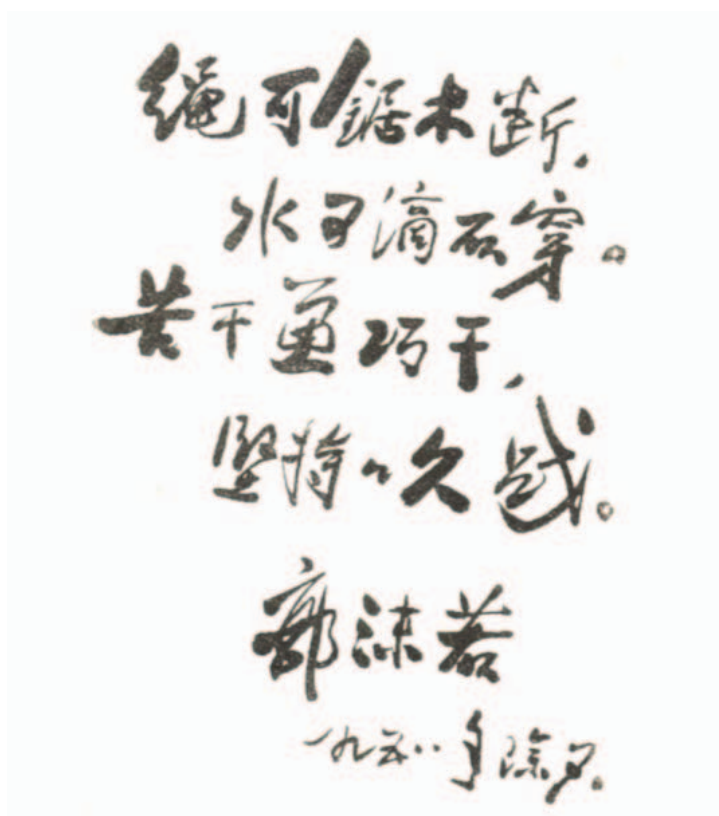 绳可锯木断，
水可滴石穿。
苦干兼巧干，
坚持必久战。
郭沫若
一九五八年除夕。